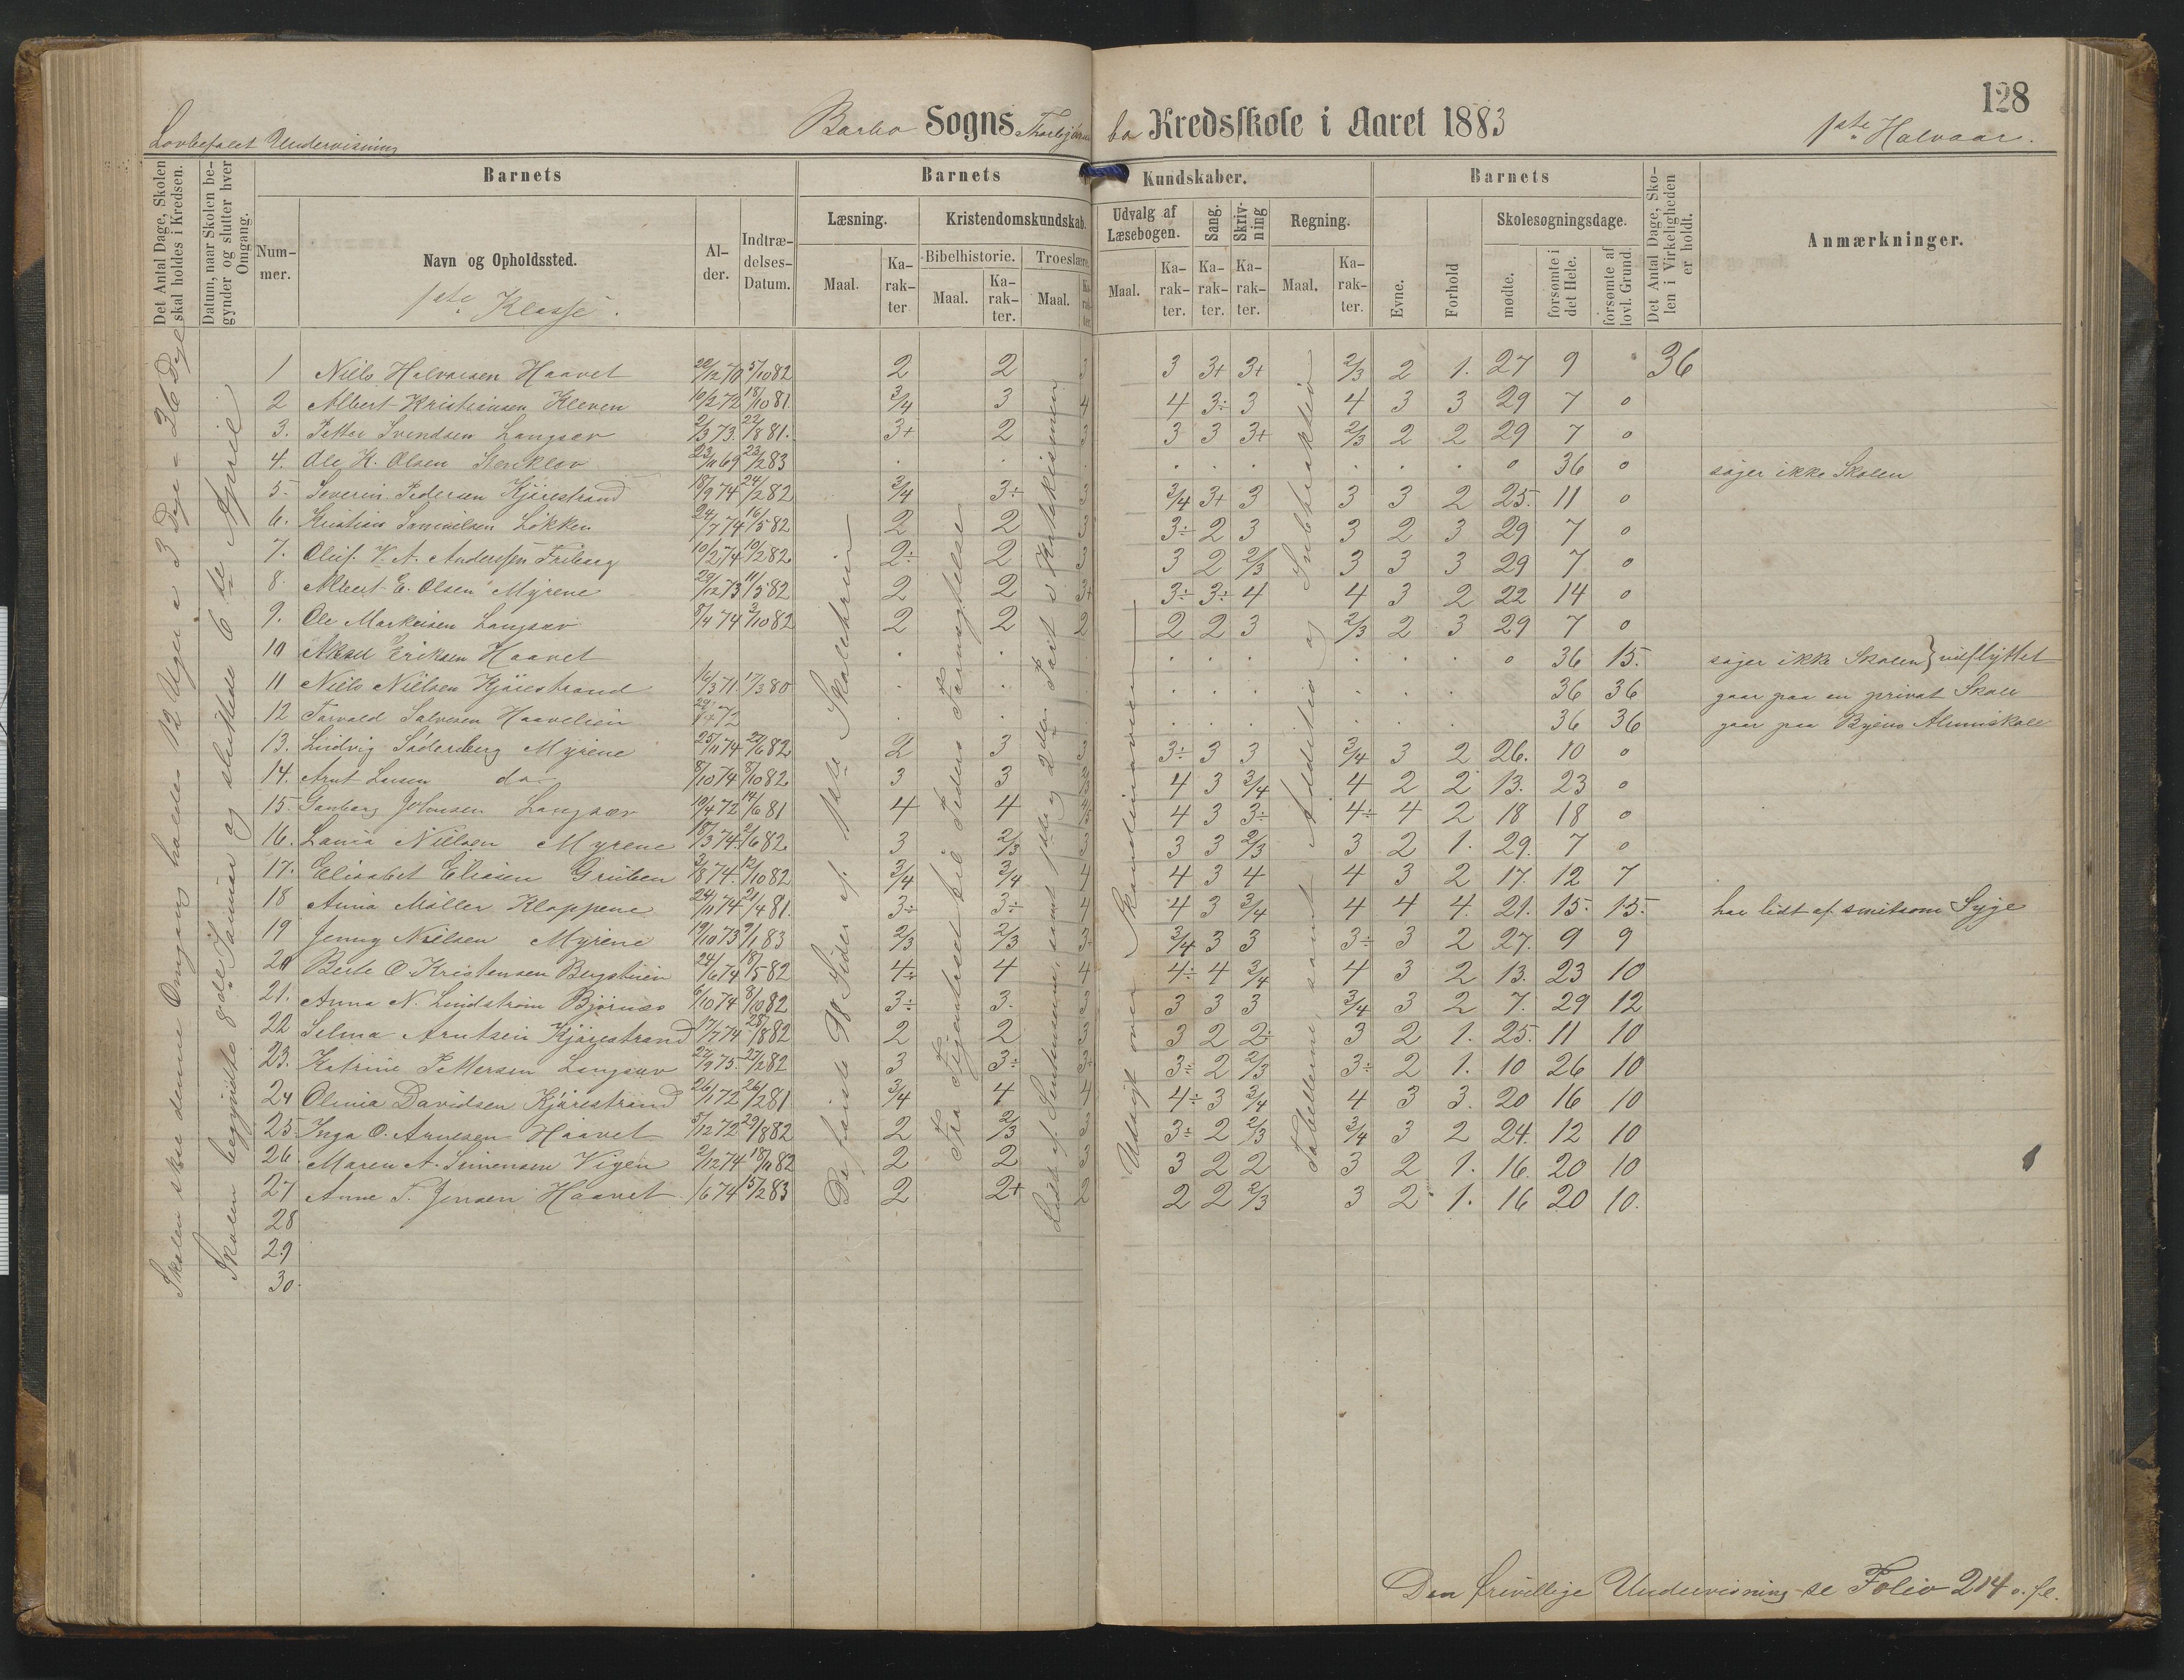 128
Lovbefalet Undervisning
Barbo Sogns Thorbjörns bo Kredsskole i Aaret 1883
1ste Halvaar.
Det Antal Dage, Skolen skal holdes i Kredsen.
Datum, naar Skolen begynder og slutter hver Omgang.
Barnets
Nummer.
Navn og Opholdssted.
1ste Klasse.
Alder.
Indtrædelses-Datum.
Barnets Kundskaber.
Læsning.
Maal.
Karakter
Kristendomskundskab.
Bibelhistorie.
Maal.
Karakter.
Troeslære.
Maal.
Karakter.
Udvalg af Læsebogen.
Maal.
Karakter.
Sang.
Karakter.
Skrivning
Karakter.
Regning.
Maal.
Karakter.
Barnets
Evne.
Forhold
Skolesøgningsdage.
mødte.
forsømte i det Hele.
forsømte af lovl. Grund.
Det Antal Dage, Skolen i Virkeligheden er holdt.
Anmærkninger.
Skolen skal denne Omgang holdes 12 Uger a 3 Dage = 36 Dage
Skolen begyndte 8de Januar og sluttede 6te April
De første 98 Sider af 1ste Skoletrin
Fra Egenkræt til Peders Fornegtelse
Lidt af Sentenserne, samt 1ste og 2den Part i Katekismen
Udsigt over Skandinavien
Tabellerne, samt Addition og Subtraktion
1 Niels Halvorsen Haavet 22/12 70 5/10 82 2 2 3 3 3+ 3+ 2/3 2 1. 27 9 36
2 Albert Kristiansen Kleven 10/2 72 18/10 81. 3/4 3 4 4 3÷ 3 4 3 3 29 7 0
3. Petter Svendsen Langsæv 2/3 73. 22/8 81. 3+ 2 3 3 3 3+ 2/3 2 2 29 7 0
4. Ole H. Olsen Stenklöv 23/11 69 23/2 83 0 36 0 søger ikke Skolen
5. Severin Pedersen Kjörrestrand 18/9 74 24/2 82 3/4 3÷ 3 3/4 3+ 3 3 3 2 25. 11 0
6. Kristian Samuelsen Løkken 24/7 74 16/5 82 2 2 3 3÷ 2 3 3 2 3 29 7 0
7. Oluf. V. A. Anderssen Friberg 10/2 74. 10/2 82 2÷ 2 3 3 2 2/3 3 3 3 29 7 0
8. Albert E. Olsen Myrene 29/12 73 11/5 82 2 2 3+ 3÷ 3÷ 4 4 3 2 22 14 0
9. Ole Markusen Langsæv 8/4 74 3/10 82 2 2 2 2 2 3 2/3 2 3 29 7 0
10 Aksel Eriksen Haavet 0 36 15. søger ikke Skolen} udflyttet
11 Niels Nielsen Kjörrestrand 16/3 71. 17/3 80 36 36 gaar paa en privat Skole
12 Torvald Salvesen Haavelien 29/4 72 36 36 gaar paa Byens Almuskole
13. Ludvig Söderberg Myrene 25/11 74 22/6 82 2 3 3 3÷ 3 3 3/4 3 2 26. 10 0
14. Arnt Larsen do 8/10 74 8/10 82 3 3 4 3 3/4 4 2 2 13. 23 0
15. Gunborg Johnsen Langsæv 10/4 72 14/6 81 4 4 4 3 3÷ 4÷ 4 2 18 18 0
16. Laura Nielsen Myrene 18/3 74. 2/6 82 3 2/3 3 3 3 2/3 3 2 1. 29. 7 0
17. Elisabet Eliasen Gruben 3/8 74. 12/10 82 3/4 3/4 4 4 3 4 4 3 2 17. 12 7
18 Anna Möller Kloppene 24/11 74 21/4 81. 3÷ 3÷ 4 4 3 3/4 4 4 4. 21. 15. 15. har lidt af smitsom Syge
19 Jenny Nielsen Myrene 19/10 73 9/1 83 2/3 2/3 3÷ 3/4 3 3 3÷ 3 2 27. 9 9
20 Berte O. Kristensen Bergstuen 24/6 74 18/5 82 4÷ 4 4 4÷ 4 3/4 4 3 2 13. 23 10
21. Anna N. Lindstrøm Björnes 6/10 74 8/10 82 3÷ 3. 3 3 3 3 3/4 3 2 7. 29 12
22 Selma Arntsen Kjörrestrand 17/7 74. 28/8 82 2 2 3 3 2 2÷ 3 2 1. 25. 11 10
23. Katrine Pettersen Langsæv 22/9 75. 27/2 82 3 3÷ 3÷ 3÷ 2 2/3 3÷ 2 1. 10 26 10
24 Olinia Davidsen Kjörrestrand 26/1 72 26/2 81 3/4 4 4 4÷ 3 3/4 4 3 3. 20 16 10
25. Inga O. Arnesen Haavet 5/12 72 29/8 82 2 2/3 3 3÷ 2 2/3 3/4 3 2 24. 12 10
26. Maren A. Simensen Vigen 2/12 74 18/11 82 2 2 3 3 2 2 3 2 1. 16. 20 10
27 Anne T. Jensen Haavet 1/6 74 15/2 83 2 2+ 2 2 2 2/3 3 2 1. 16 20 10.
28
29
30.
Den frivillige Undervisning se Folio 214 o. fl.